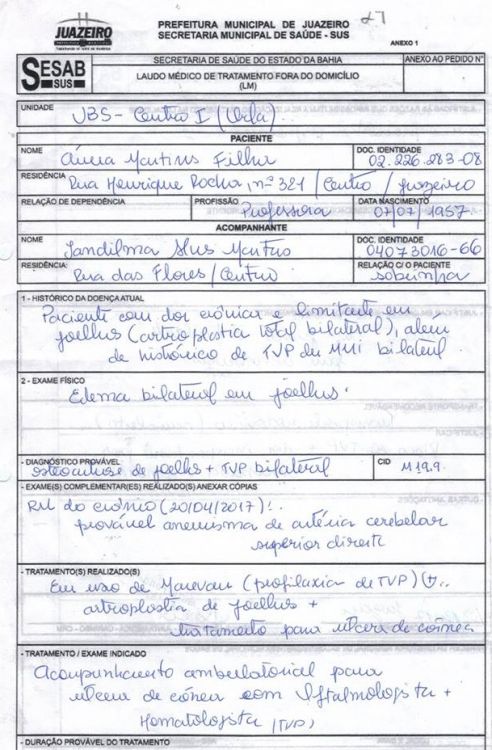 27
JUAZEIRO
PREFEITURA MUNICIPAL DE JUAZEIRO
SECRETARIA MUNICIPAL DE SAÚDE - SUS
ANEXO 1
SESAB
SUS
SECRETARIA DE SAÚDE DO ESTADO DA BAHIA
ANEXO AO PEDIDO Nº
LAUDO MÉDICO DE TRATAMENTO FORA DO DOMICÍLIO
(LM)
UNIDADE
UBS - Centro I (Orla)
PACIENTE
NOME
Martins Filha
DOC. IDENTIDADE
02.226.283-08
RESIDÊNCIA
Rua Henrique Rocha, nº 321 / Centro / Juazeiro
RELAÇÃO DE DEPENDÊNCIA
PROFISSÃO
Professora
DATA NASCIMENTO
07/07/1957
ACOMPANHANTE
NOME
Jandilma Martins
DOC. IDENTIDADE
04073016-66
RESIDÊNCIA:
Rua das Flores / Centro
RELAÇÃO C/ O PACIENTE
sobrinha
1 - HISTÓRICO DA DOENÇA ATUAL
Paciente com dor crônica e limitante em
joelhos (artroplastia total bilateral), alem
de histórico de TVP de MMII bilateral.
2 - EXAME FÍSICO
Edema bilateral em joelhos.
- DIAGNÓSTICO PROVÁVEL
osteoartrose de joelho + TVP bilateral
CID
M19.9.
- EXAME(S) COMPLEMENTAR(ES) REALIZADO(S) ANEXAR CÓPIAS
RM do crânio (20/04/2017):
provável aneurisma de artéria cerebelar
superior direita
- TRATAMENTO(S) REALIZADO(S)
Em uso de Marevan (profilaxia de TVP) +
artroplastia de joelhos +
tratamento para úlcera de córnea
- TRATAMENTO / EXAME INDICADO
Acompanhamento ambulatorial para
úlcera de córnea com Oftalmologista +
Hematologista (TVP)
- DURAÇÃO PROVÁVEL DO TRATAMENTO